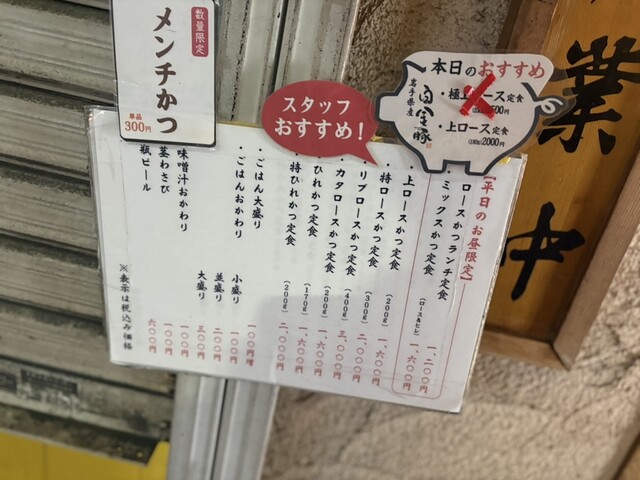 数量限定
メンチかつ
単品
300円
スタッフ
おすすめ!
本日のおすすめ
岩手県産
白金豚
・極上ロース定食
・上ロース定食
2000円
【平日のお昼限定】
ロースかつランチ定食 一、二〇〇円
・ミックスかつ定食(ロース&ヒレ) 一、六〇〇円
上ロースかつ定食(200g) 一、六〇〇円
特ロースかつ定食(300g) 二、〇〇〇円
・リブロースかつ定食(400g) 三、〇〇〇円
・カタロースかつ定食(200g) 一、六〇〇円
・ひれかつ定食(170g) 一、六〇〇円
・特ひれかつ定食(200g) 二、〇〇〇円
・ごはん大盛り 一〇〇円増
・ごはんおかわり 小盛り 一〇〇円
並盛り 二〇〇円
大盛り 三〇〇円
味噌汁おかわり 一〇〇円
茎わさび 一〇〇円
瓶ビール 六〇〇円
※表示は税込み価格
業中